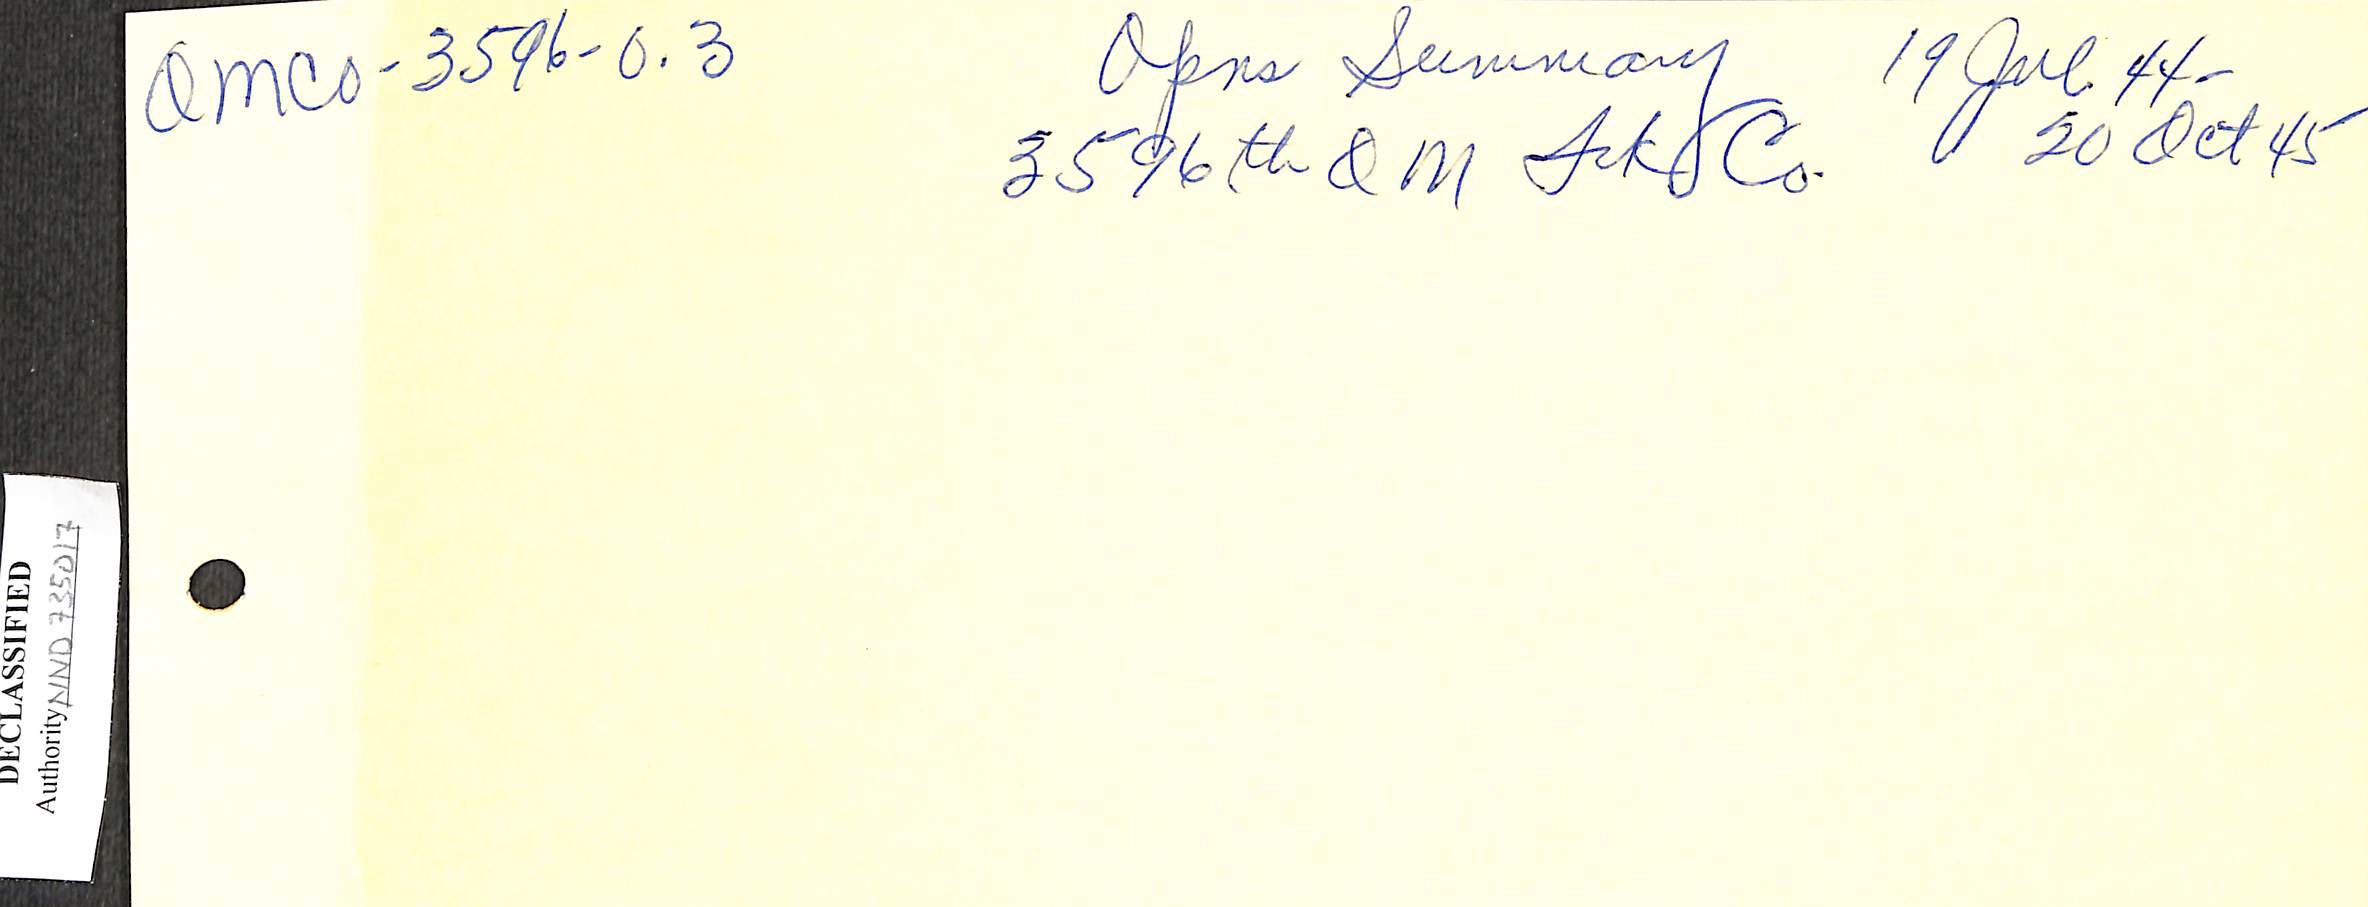 QMCO-3596-0.3
Opns Summary 19 Jul. 44-
3596th QM Trk Co. 20 Oct 45
DECLASSIFIED
Authority NND 735017